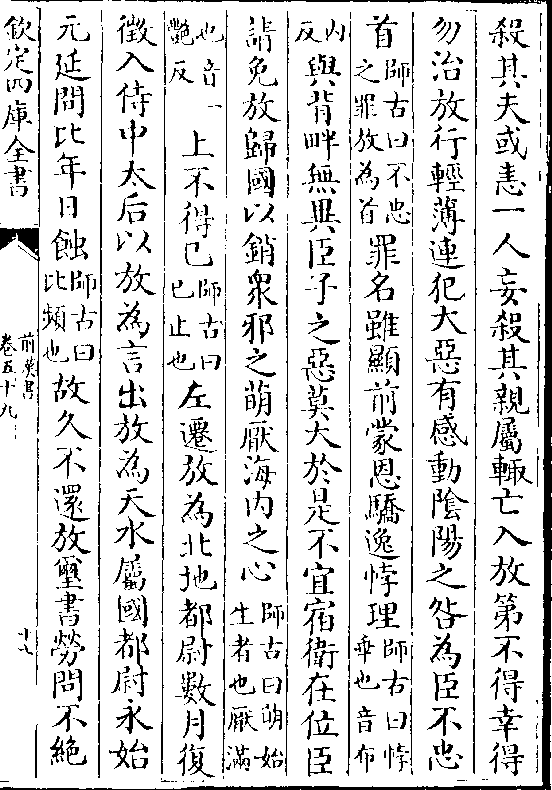 殺其夫或恚一人妄殺其親屬輙亡入放第不得幸得
勿治放行輕薄連犯大惡有感動隂陽之咎為臣不忠
首師古曰不忠之罪放為首罪名雖顯前蒙恩驕逸悖理師古曰悖乖也音布
内反與背畔無異臣子之惡莫大於是不宜宿衛在位臣
請免放歸國以銷衆邪之萌厭海内之心師古曰萌始生者也厭滿
也音一艷反上不得已師古曰已止也左遷放為北地都尉數月復
徵入侍中太后以放為言出放為天水屬國都尉永始
元延間比年日蝕師古曰比頻也故久不還放璽書勞問不絶
欽定四庫全書
前漢書
卷五十九
十九